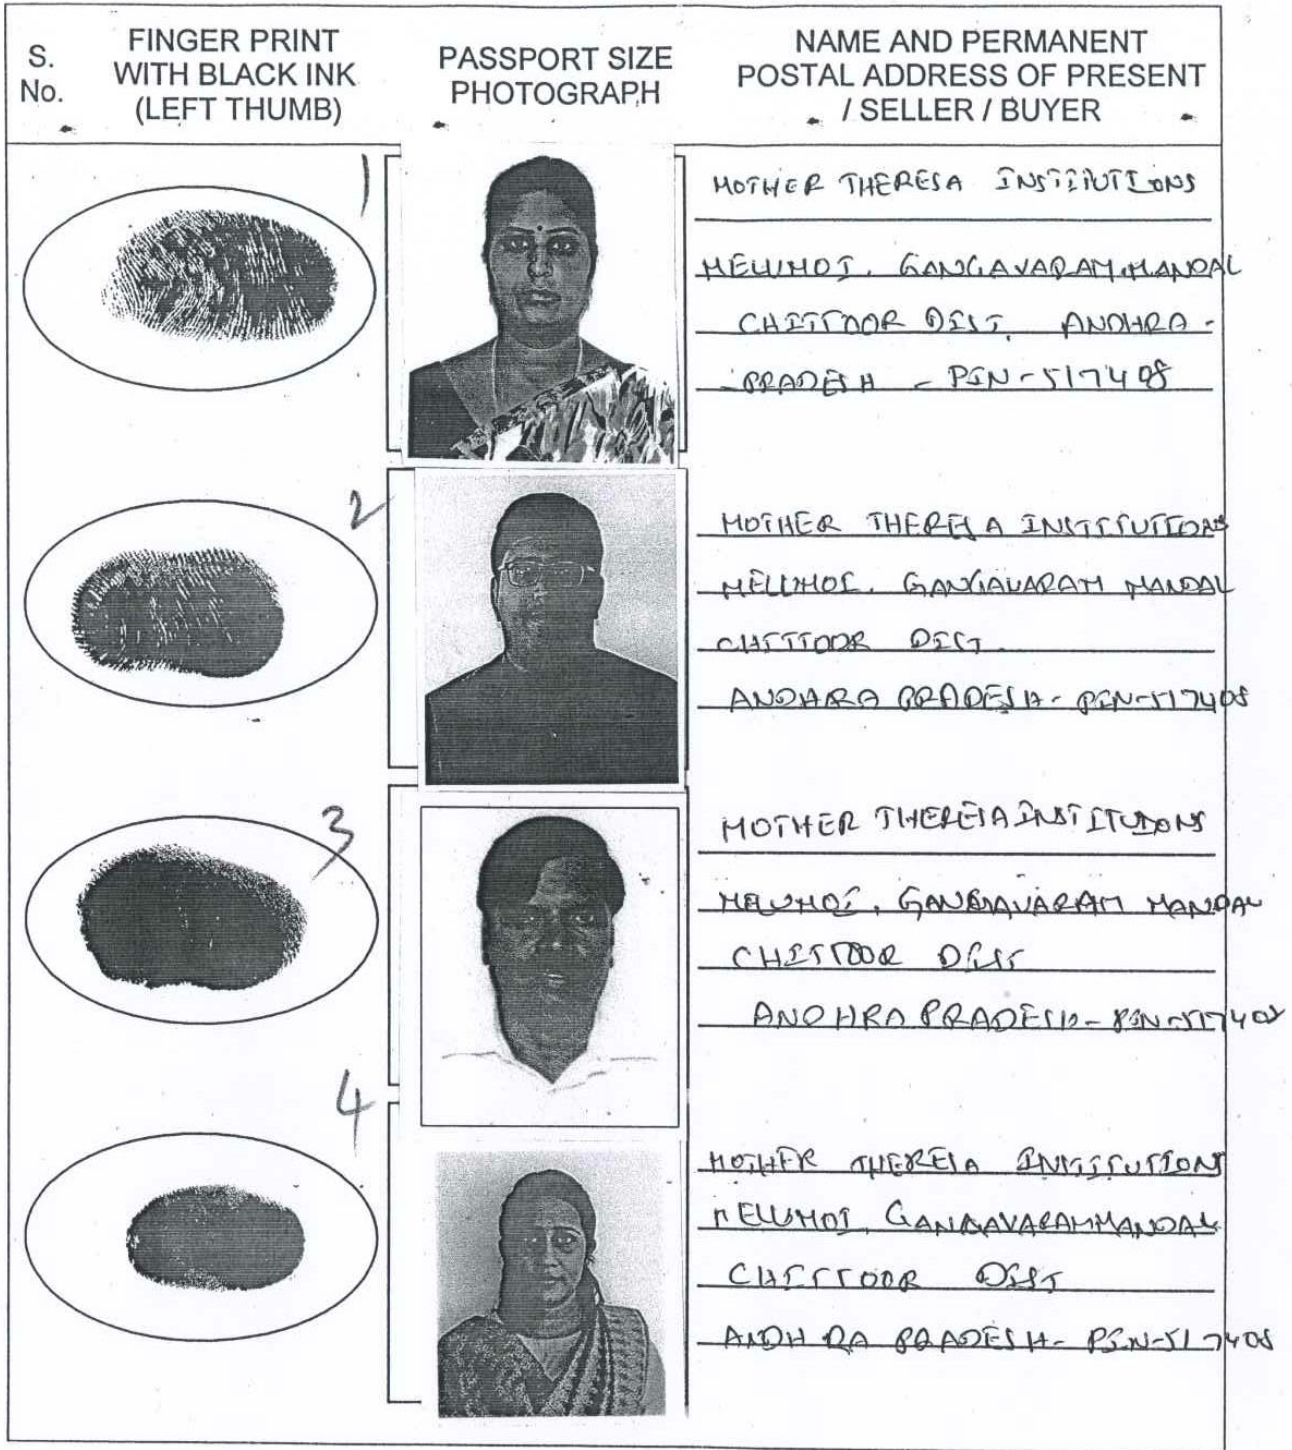 S. No.
FINGER PRINT WITH BLACK INK (LEFT THUMB)
PASSPORT SIZE PHOTOGRAPH
NAME AND PERMANENT POSTAL ADDRESS OF PRESENT / SELLER / BUYER
1
MOTHER THERESA INSTITUTIONS
MELUMOI. GANGAVARAM. MANDAL
CHITTOOR DIST. ANDHRA -
- PRADESH - PIN - 517408
2
MOTHER THERESA INSTITUTIONS
MELUMOI. GANGAVARAM MANDAL
CHITTOOR DIST.
ANDHRA PRADESH - PIN-517408
3
MOTHER THERESA INSTITUTIONS
MELUMOI, GANGAVARAM MANDAL
CHITTOOR DIST
ANDHRA PRADESH - PIN-517408
4
MOTHER THERESA INSTITUTIONS
MELUMOI, GANGAVARAM MANDAL
CHITTOOR DIST
ANDHRA PRADESH - PIN-517408